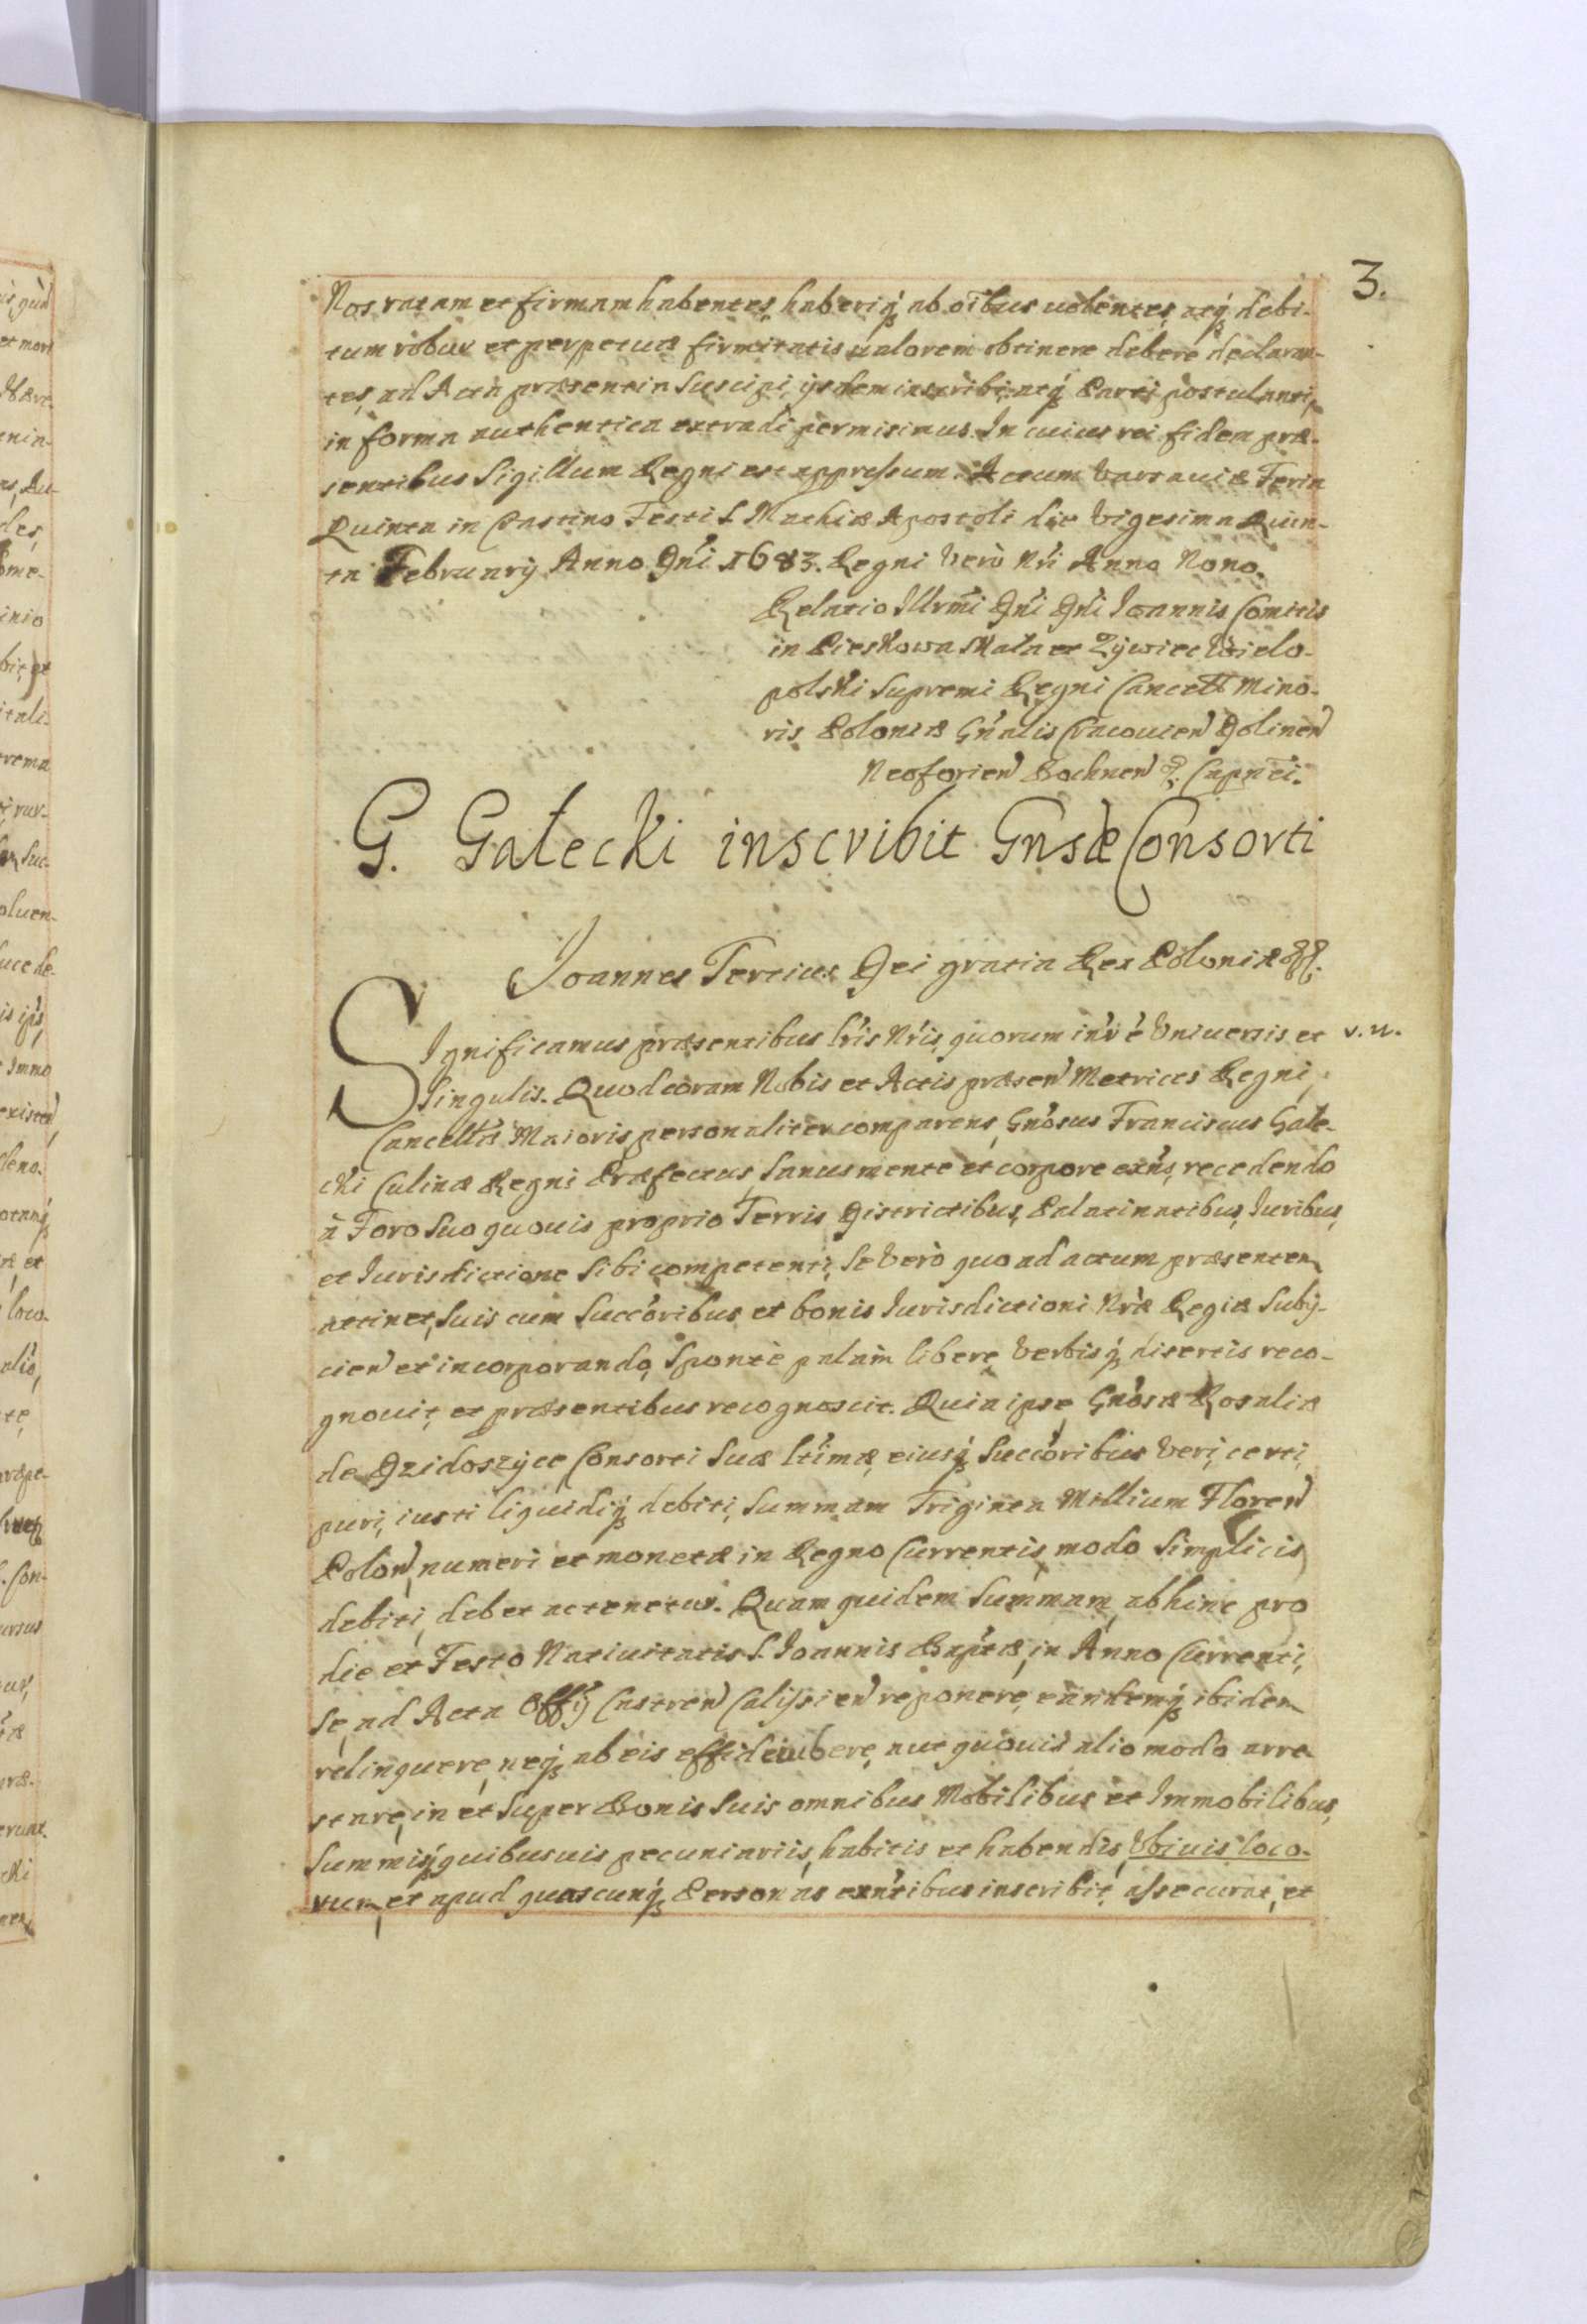 3.
Nos ratam et firmam habentes, haberiq; ab oībus uolentes, atq; debi-
tum robur et perpetuæ firmitatis ualorem obtinere debere declaran-
tes, ad Acta præsentia suscipi, ijsdem inscribi, atq; Parti postulanti,
in forma authentica extradi permisimus. In cuius rei fidem præ-
sentibus Sigillum Regni est appressum. Actum Varsauiæ Feria
Quinta in Crastino Festi S. Mathiæ Apostoli die Vigesima Quin-
ta February Anno Dn̄i 1683. Regni Verò Nr̄i Anno Nono.
Relatio Illrmi Dn̄i Dn̄i Ioannis Comitis
in Pieskowa Skała et Zÿwiec Wielo-
polski Supremi Regni Cancell Mino-
ris Poloniæ Gn̄alis Cracouien Bolinen
Neoforien Bochnen & Capnei.
G. Gałecki inscribit Gnsæ Consorti
Ioannes Tertius Dei gratia Rex Poloniæ &&.
Significamus præsentibus lr̄is Nr̄is, quorum int̄e Vniuersis et
v. n.
Singulis. Quod coram Nobis et Actis præsen Metrices Regni
Cancellr̄æ Maioris personaliter comparens, Gn̄osus Franciscus Gałe-
cki Culinæ Regni Præfectus, Sanus mente et corpore exn̄s, recedendo
à Foro Suo quouis proprio Terris, Districtibus, Palatinatibus, Iuribus,
et Iurisdictione Sibi competenti, Se Verò quo ad actum præsentem
attinet, Suis cum Succ̄oribus et bonis Iurisdictioni Nr̄æ Regiæ Subij-
cien et incorporando, Spontè palàm liberè, Verbisq; disertis reco-
gnouit, et præsentibus recognoscit. Quia ipse, Gn̄osæ Rosaliæ
de Dzidoszÿce Consorti Suæ ltīmæ, eiusq; Succ̄oribus Veri, certi,
puri, iusti liquidiq; debiti, Summam Triginta Millium Floren
Polon, numeri et monetæ in Regno Currentis modo Simplicis
debiti, debet ac tenetur. Quam quidem Summam, abhinc pro
die et Festo Natiuitatis S. Ioannis Baptæ, in Anno Currenti,
Se, ad Acta Offij Castren Calissien reponere, eandemq; ibidem
relinquere, neq; ab eis effideiubere, aut quouis alio modo arre-
stare, in et Super Bonis Suis omnibus Mobilibus et Immobilibus,
Summisq; quibusuis pecuniariis, habitis et habendis, Vbiuis loco-
rum, et apud quascunq; Personas exn̄tibus inscribit, assecurat, et